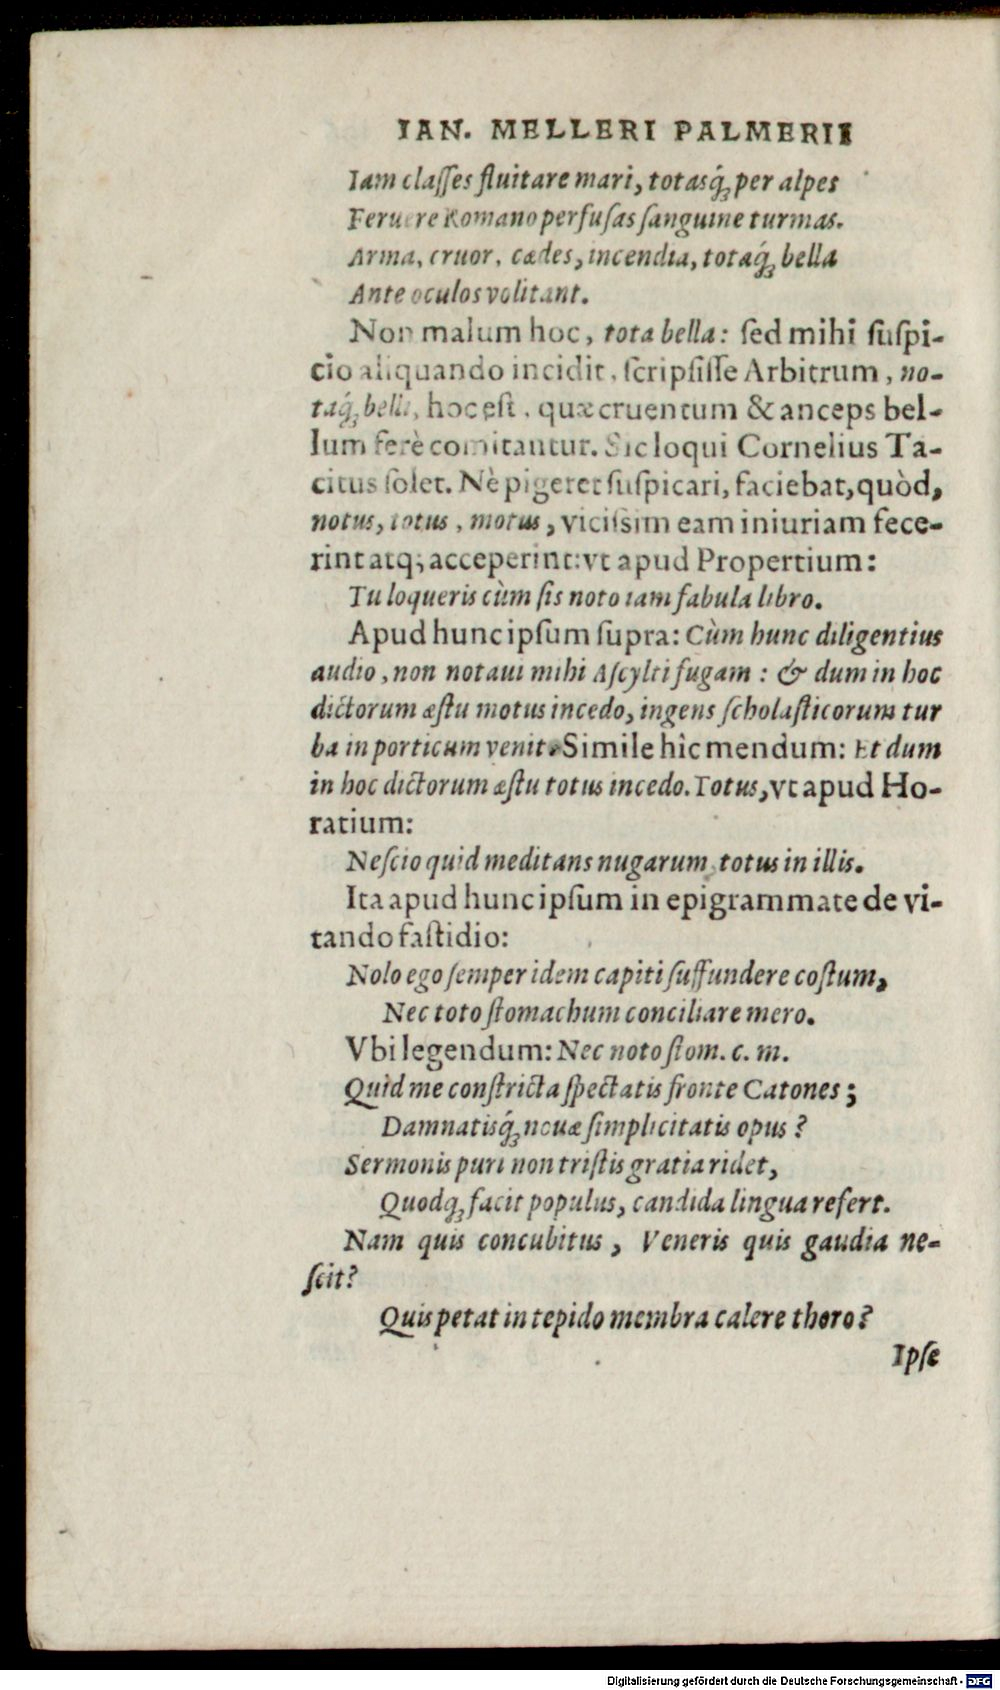 IAN. MELLERI PALMERII
Iam claſſes fluitare mari, totasq́; per alpes
Feruere Romano perfuſas ſanguine turmas.
Arma, cruor, cædes, incendia, totaq́; bella
Ante oculos volitant.
Non malum hoc, tota bella: ſed mihi ſuſpi-
cio aliquando incidit, ſcripſiſſe Arbitrum, no-
taq́; bella, hoc eſt, quæ cruentum & anceps bel-
lum ferè comitantur. Sic loqui Cornelius Ta-
citus ſolet. Nè pigeret ſuſpicari, faciebat, quòd,
notus, totus, motus, viciſsim eam iniuriam fece-
rint atq; acceperint: vt apud Propertium:
Tu loqueris cùm ſis noto iam fabula libro.
Apud hunc ipſum ſupra: Cùm hunc diligentius
audio, non notaui mihi Aſcylti fugam: & dum in hoc
dictorum æſtu motus incedo, ingens ſcholaſticorum tur
ba in porticum venit. Simile hîc mendum: Et dum
in hoc dictorum æſtu totus incedo. Totus, vt apud Ho-
ratium:
Neſcio quid meditans nugarum, totus in illis.
Ita apud hunc ipſum in epigrammate de vi-
tando faſtidio:
Nolo ego ſemper idem capiti ſuffundere coſtum,
Nec toto ſtomachum conciliare mero.
Vbi legendum: Nec noto ſtom. c. m.
Quid me conſtricta ſpectatis fronte Catones;
Damnatisq́; nouæ ſimplicitatis opus?
Sermonis puri non triſtis gratia ridet,
Quodq; facit populus, candida lingua refert.
Nam quis concubitus, Veneris quis gaudia ne-
ſcit?
Quis petat in tepido membra calere thoro?
Ipſe
Digitalisierung gefördert durch die Deutsche Forschungsgemeinschaft - DFG